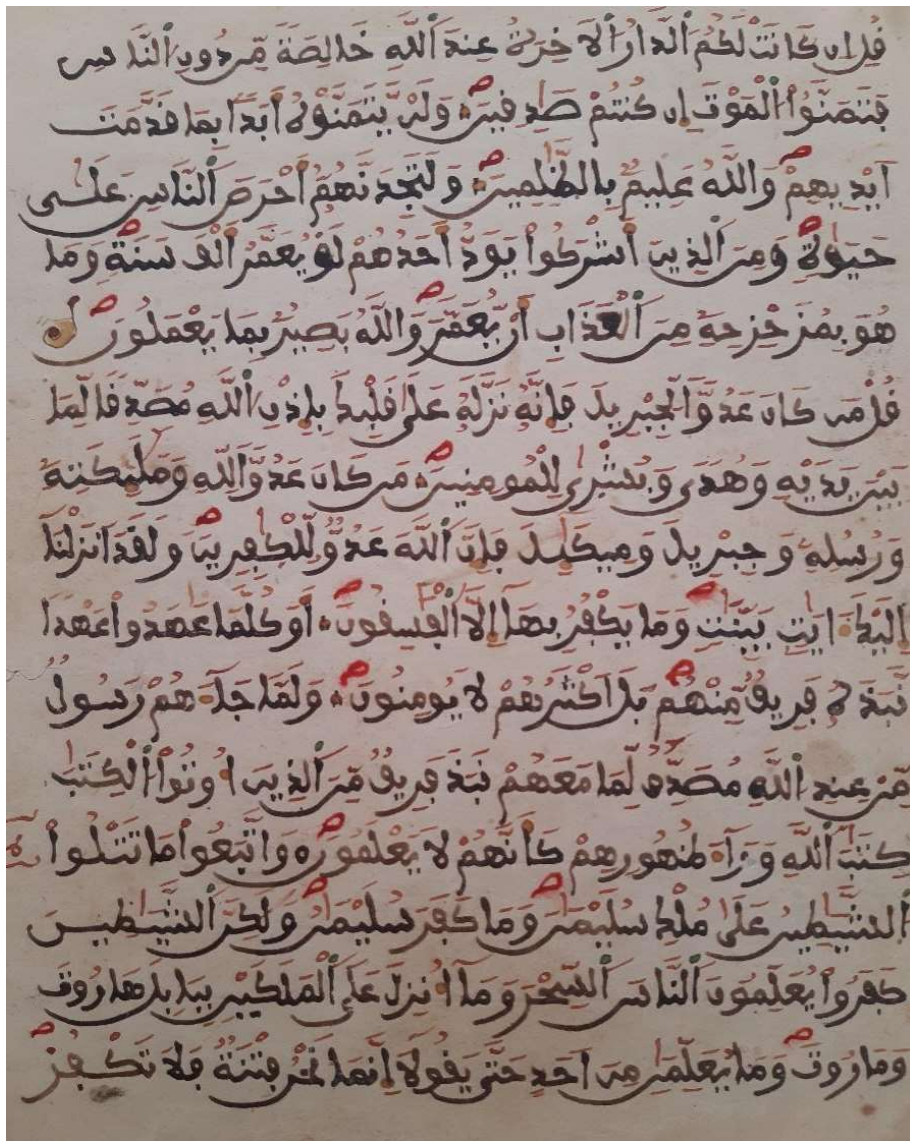 قُلِ ان كَانَتْ لَكُمُ اُلدَّارُ اُلَاخِرَةُ عِندَ اَللَّهِ خَالِصَةً مِّن دُونِ اِلنَّاسِ
فَتَمَنَّوُاْ اُلْمَوْتَ إِن كُنتُمْ صَٰدِقِينَ وَلَنْ يَّتَمَنَّوْهُ أَبَداً بِمَا قَدَّمَتَ
اَيْدِيهِمْ وَاللَّهُ عَلِيمٌ بِالظَّٰلِمِينَ وَلَتَجِدَنَّهُمُ أَحْرَصَ اَلنَّاسِ عَلَىٰ
حَيَوٰةٍ وَمِنَ اَلذِينَ أَشْرَكُواْ يَوَدُّ أَحَدُهُمْ لَوْ يُعَمَّرُ أَلْفَ سَنَةٍ وَمَا
هُوَ بِمُزَحْزِحِهِ مِنَ اَلْعَذَابِ أَنْ يُّعَمَّرَ وَاللَّهُ بَصِيرٌ بِمَا يَعْمَلُونَ
قُلْ مَن كَانَ عَدُوّاً لِّجِبْرِيلَ فَإِنَّهُ نَزَّلَهُ عَلَىٰ قَلْبِكَ بِإِذْنِ اِللَّهِ مُصَدِّقاً لِّمَا
بَيْنَ يَدَيْهِ وَهُدىً وَبُشْرَىٰ لِلْمُومِنِينَ مَن كَانَ عَدُوّاً لِّلَّهِ وَمَلَٰٓئِكَتِهِ
وَرُسُلِهِ وَجِبْرِيلَ وَمِيكَٰٓئِلَ فَإِنَّ اَللَّهَ عَدُوٌّ لِّلْكَٰفِرِينَ وَلَقَدَ اَنزَلْنَا
إِلَيْكَ ءَايَٰتِۢ بَيِّنَٰتٍ وَمَا يَكْفُرُ بِهَا إِلَّا اَلْفَٰسِقُونَ أَوَكُلَّمَا عَٰهَدُواْ عَهْداً
نَّبَذَهُ فَرِيقٌ مِّنْهُمْ بَلَ اَكْثَرُهُمْ لَا يُومِنُونَ وَلَمَّا جَاءَهُمْ رَسُولٌ
مِّنْ عِندِ اِللَّهِ مُصَدِّقٌ لِّمَا مَعَهُمْ نَبَذَ فَرِيقٌ مِّنَ اَلذِينَ أُوتُواْ اُلْكِتَٰبَ
كِتَٰبَ اَللَّهِ وَرَاءَ ظُهُورِهِمْ كَأَنَّهُمْ لَا يَعْلَمُونَ وَاتَّبَعُواْ مَا تَتْلُواْ
اُلشَّيَٰطِينُ عَلَىٰ مُلْكِ سُلَيْمَٰنَ وَمَا كَفَرَ سُلَيْمَٰنُ وَلَٰكِنَّ اَلشَّيَٰطِينَ
كَفَرُواْ يُعَلِّمُونَ اَلنَّاسَ اَلسِّحْرَ وَمَا أُنزِلَ عَلَى اَلْمَلَكَيْنِ بِبَابِلَ هَارُوتَ
وَمَارُوتَ وَمَا يُعَلِّمَٰنِ مِنَ اَحَدٍ حَتَّىٰ يَقُولَا إِنَّمَا نَحْنُ فِتْنَةٌ فَلَا تَكْفُرْ